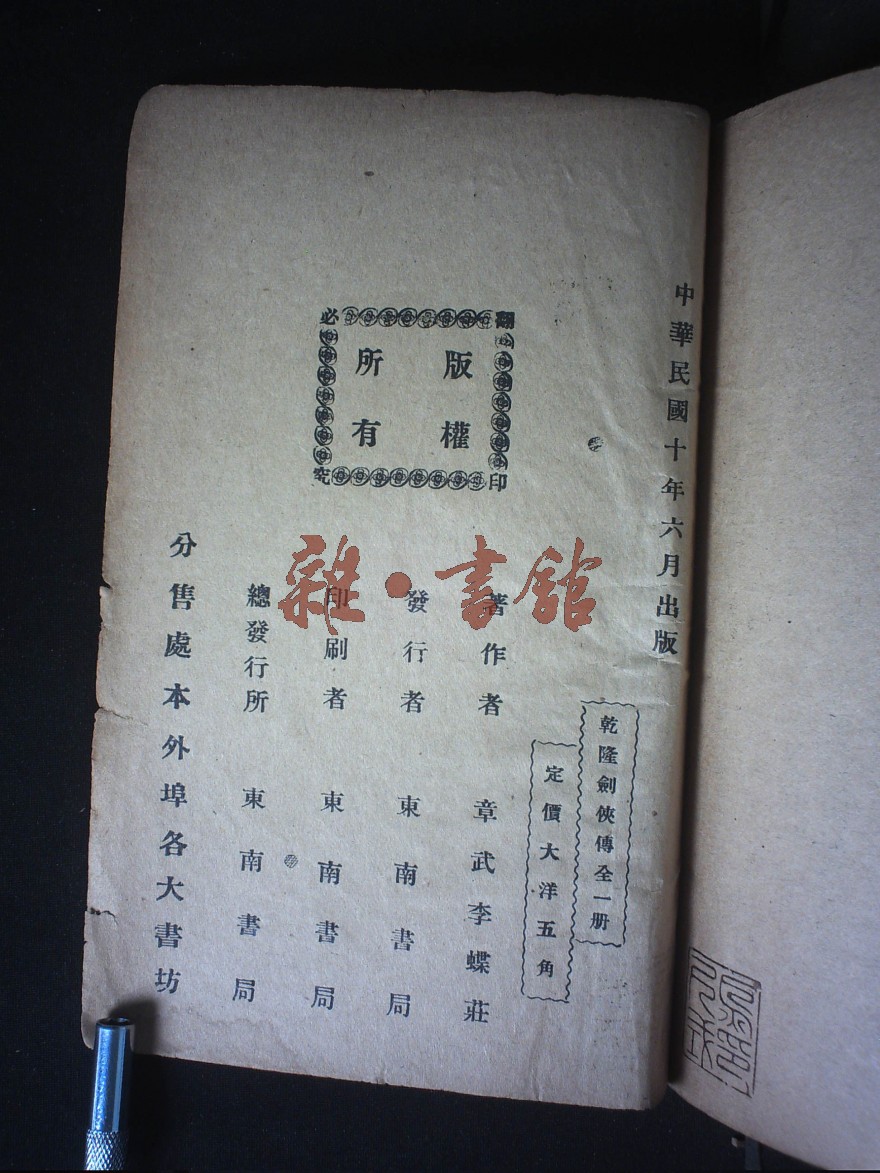 中華民國十年六月出版
乾隆劍俠傳全一册
定價大洋五角
翻印必究
版權所有
著作者 章武李蝶莊
發行者 東南書局
印刷者 東南書局
總發行所 東南書局
分售處本外埠各大書坊
雜·書館